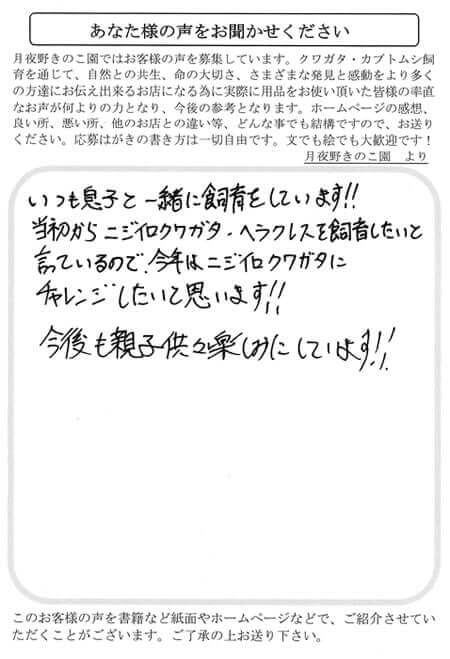 あなた様の声をお聞かせください
月夜野きのこ園ではお客様の声を募集しています。クワガタ・カブトムシ飼
育を通じて、自然との共生、命の大切さ、さまざまな発見と感動をより多く
の方達にお伝え出来るお店になる為に実際に用品をお使い頂いた皆様の率直
なお声が何よりの力となり、今後の参考となります。ホームページの感想、
良い所、悪い所、他のお店との違い等、どんな事でも結構ですので、お送り
ください。応募はがきの書き方は一切自由です。文でも絵でも大歓迎です！
月夜野きのこ園　より
いつも息子と一緒に飼育をしています!!
当初からニジイロクワガタ・ヘラクレスを飼育したいと
言っているので、今年はニジイロクワガタに
チャレンジしたいと思います!!
今後も親子供々楽しみにしています!!
このお客様の声を書籍など紙面やホームページなどで、ご紹介させてい
ただくことがございます。ご了承の上お送り下さい。